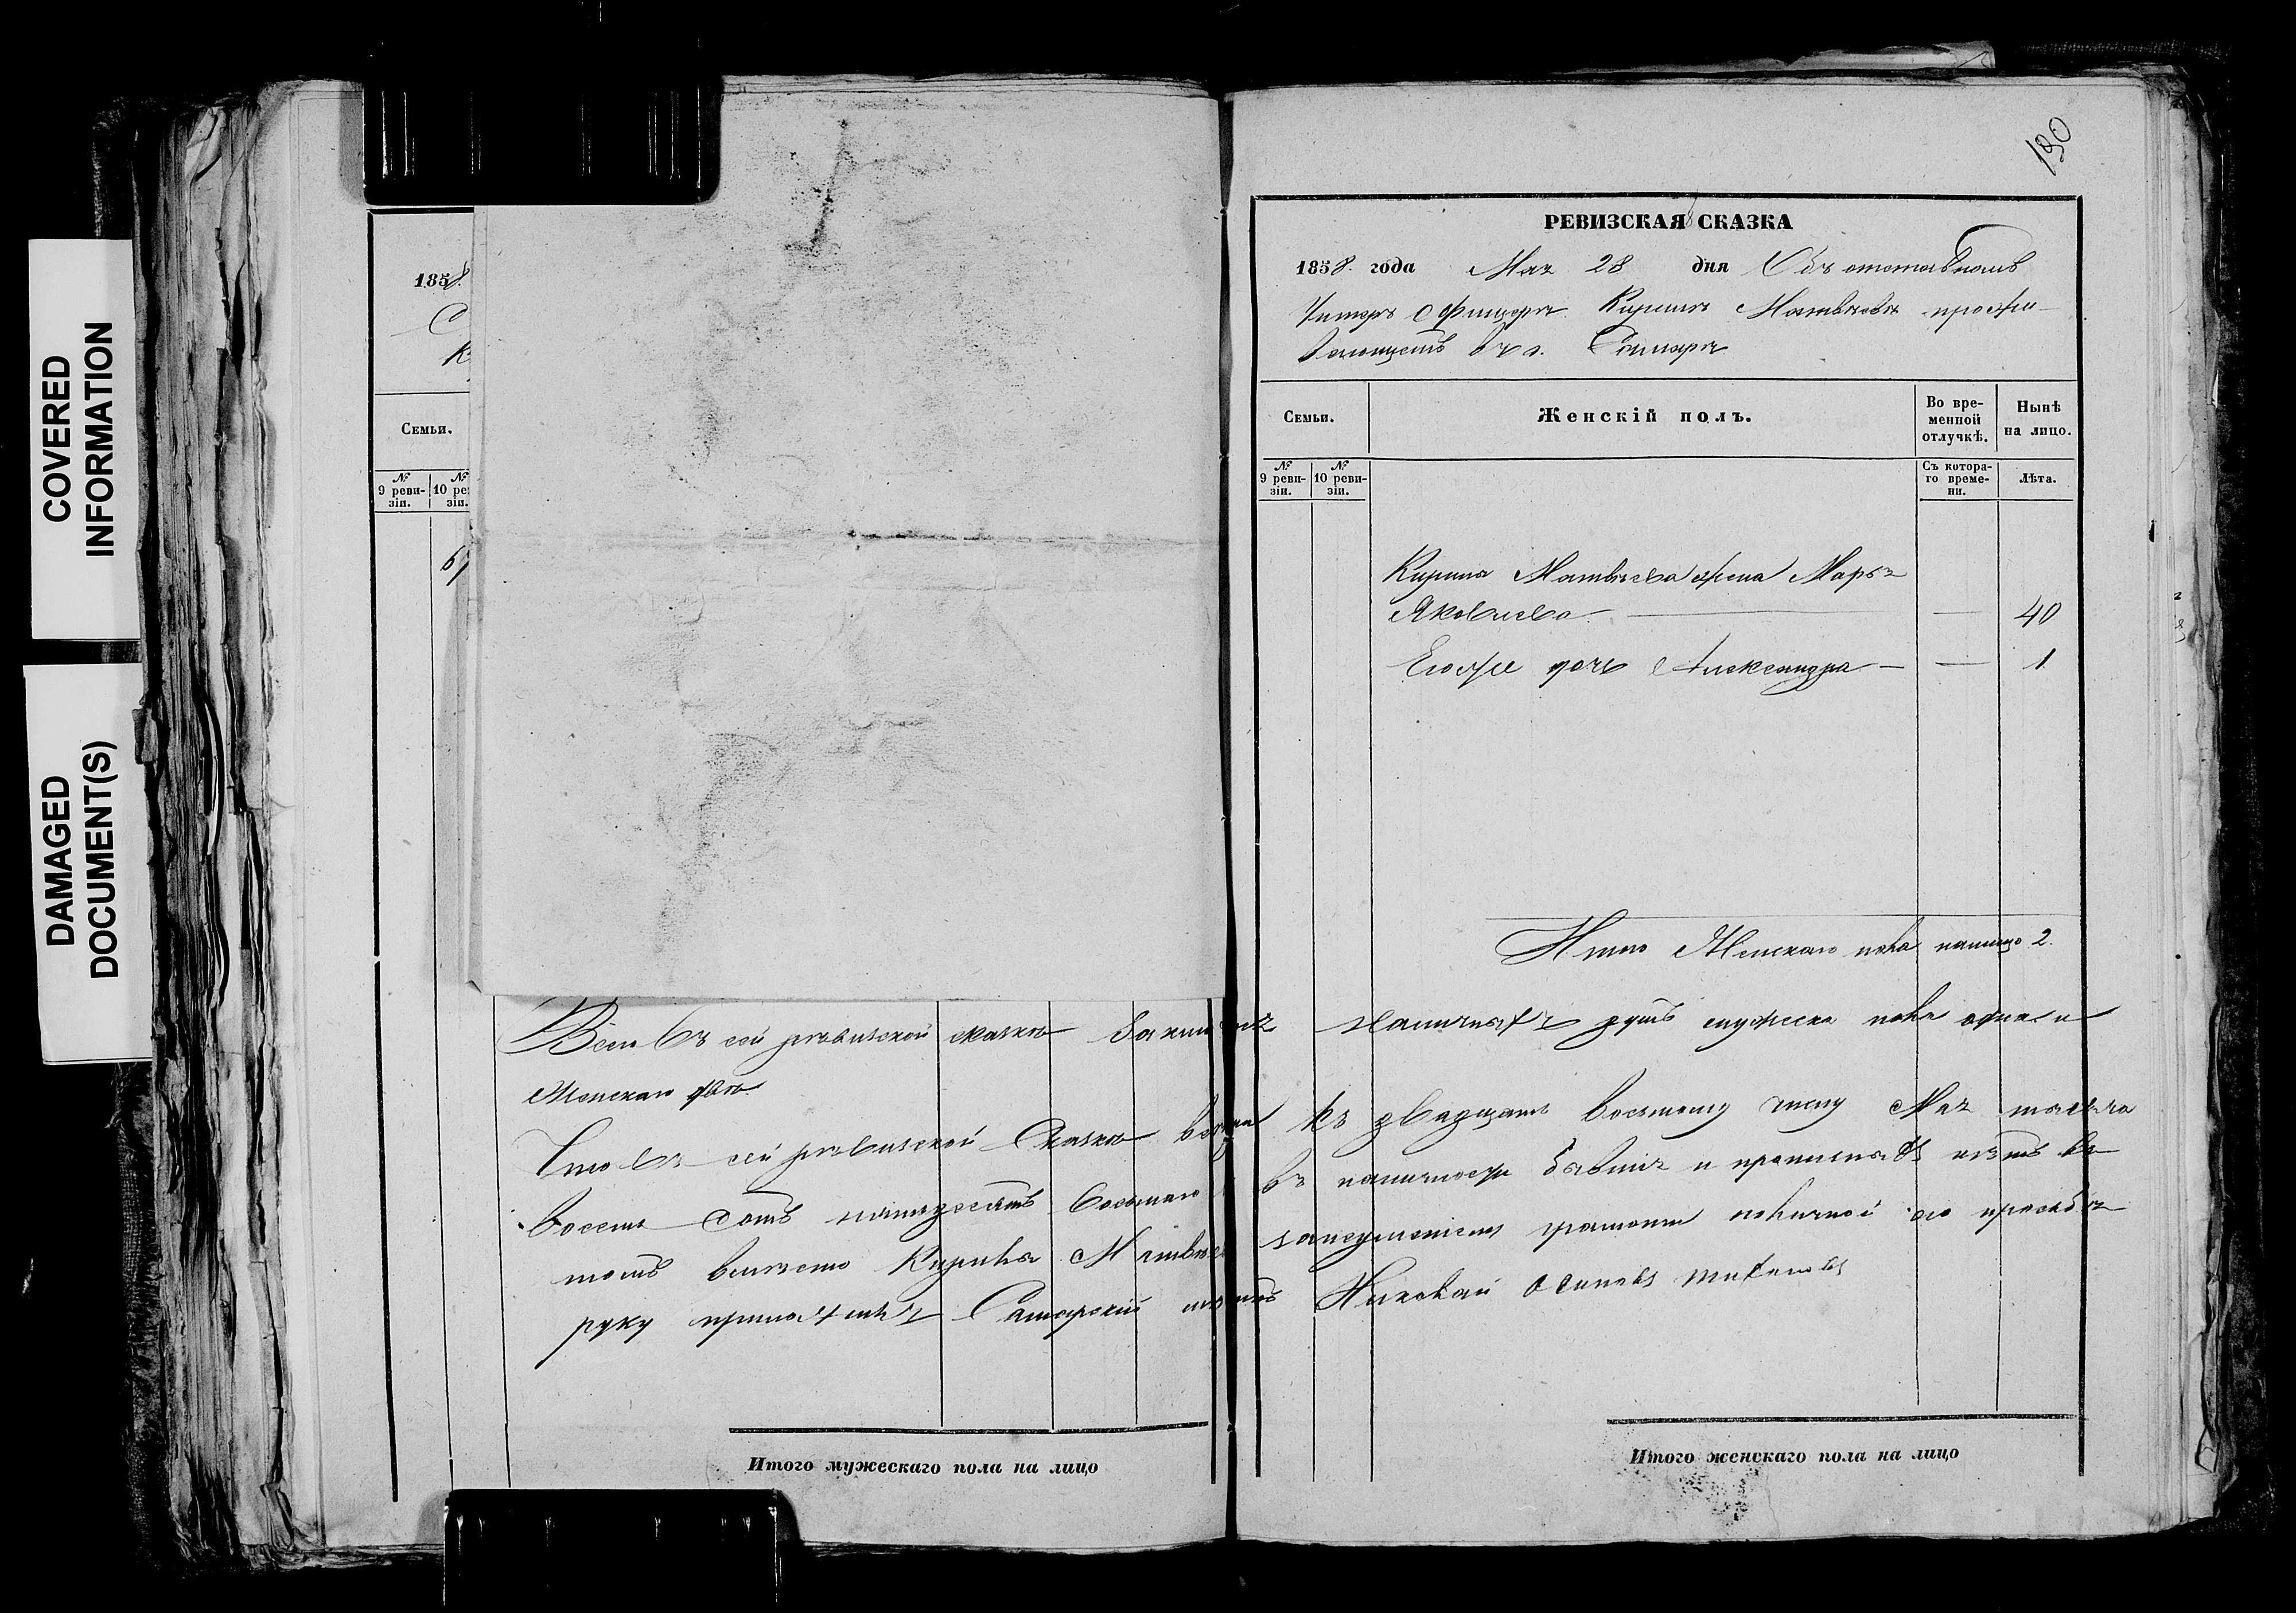 COVERED
INFORMATION
DAMAGED
DOCUMENT(S)
1858.
С
К
Семьи.
№ 9 реви-зіи.
№ 10 ре зіи.
190
РЕВИЗСКАЯ СКАЗКА
1858. года Мая 28 дня Объ отставномъ
Унтеръ Офицерѣ Кирилѣ Матвѣевѣ прожи-
вающемъ въ г. Самарѣ
Семьи.
Женскій полъ.
Во вре-
менной
отлучкѣ.
Нынѣ
на лицо.
№ 9 реви-зіи.
№ 10 реви-зіи.
Съ котора-
го време-
ни.
Лѣта.
Кирила Матвѣева жена Марья
Яковлева — — 40
Егоже дочь Александра — — 1
Итого Женскаго пола налицо 2.
Всего въ сей ревизской сказкѣ наличныхъ душъ мужеска пола одна и
Женскаго двѣ.
Что въ сей ревизской Сказкѣ къ двадцать восьмому числу Мая мѣсяца
восемь сотъ пятьдесятъ восьмаго въ наличности бывшія и
томъ вмѣсто Кирила Матвѣева грамоты по личной его прозьбѣ
руку приложилъ Самарскій Николай Осиповъ
Итого мужескаго пола на лицо
Итого женскаго пола на лицо